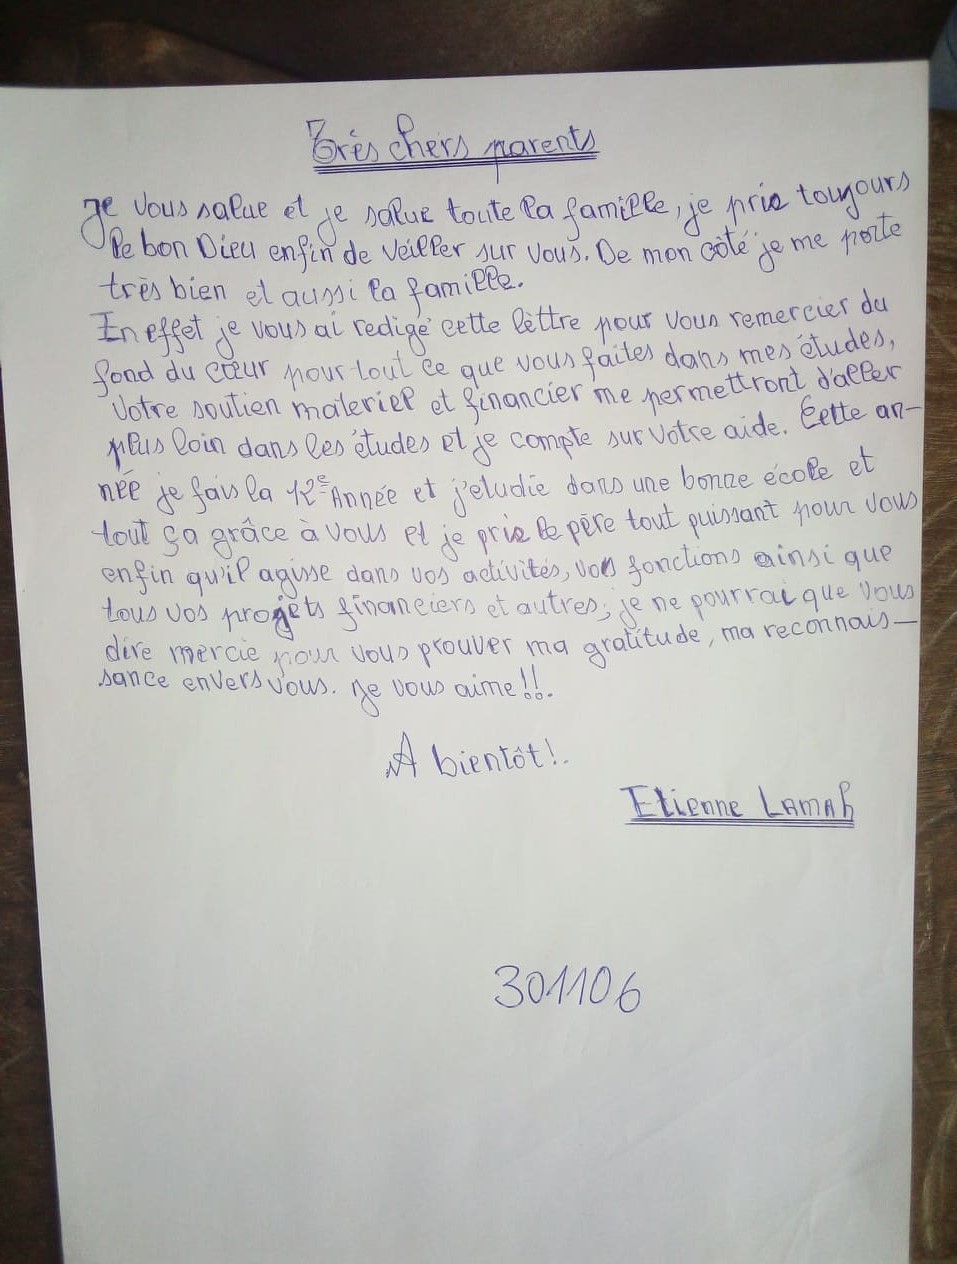 Très chers parents
Je vous salue et je salue toute la famille, je prie toujours
le bon Dieu enfin de veiller sur vous. De mon côté je me porte
très bien et aussi la famille.
En effet je vous ai redigé cette lèttre pour vous remercier du
fond du cœur pour tout ce que vous faites dans mes études,
Votre soutien materiel et financier me permettront d'aller
plus loin dans les études et je compte sur votre aide. Cette an-
née je fais la 12e Année et j'etudie dans une bonne école et
tout ça grâce à vous et je prie le père tout puissant pour vous
enfin qu'il agisse dans vos activités, vos fonctions ainsi que
tous vos projets financiers et autres; je ne pourrai que vous
dire mercie pour vous prouver ma gratitude, ma reconnais-
sance envers vous. Je vous aime!!.
A bientôt!.
Etienne LAMAh
301106